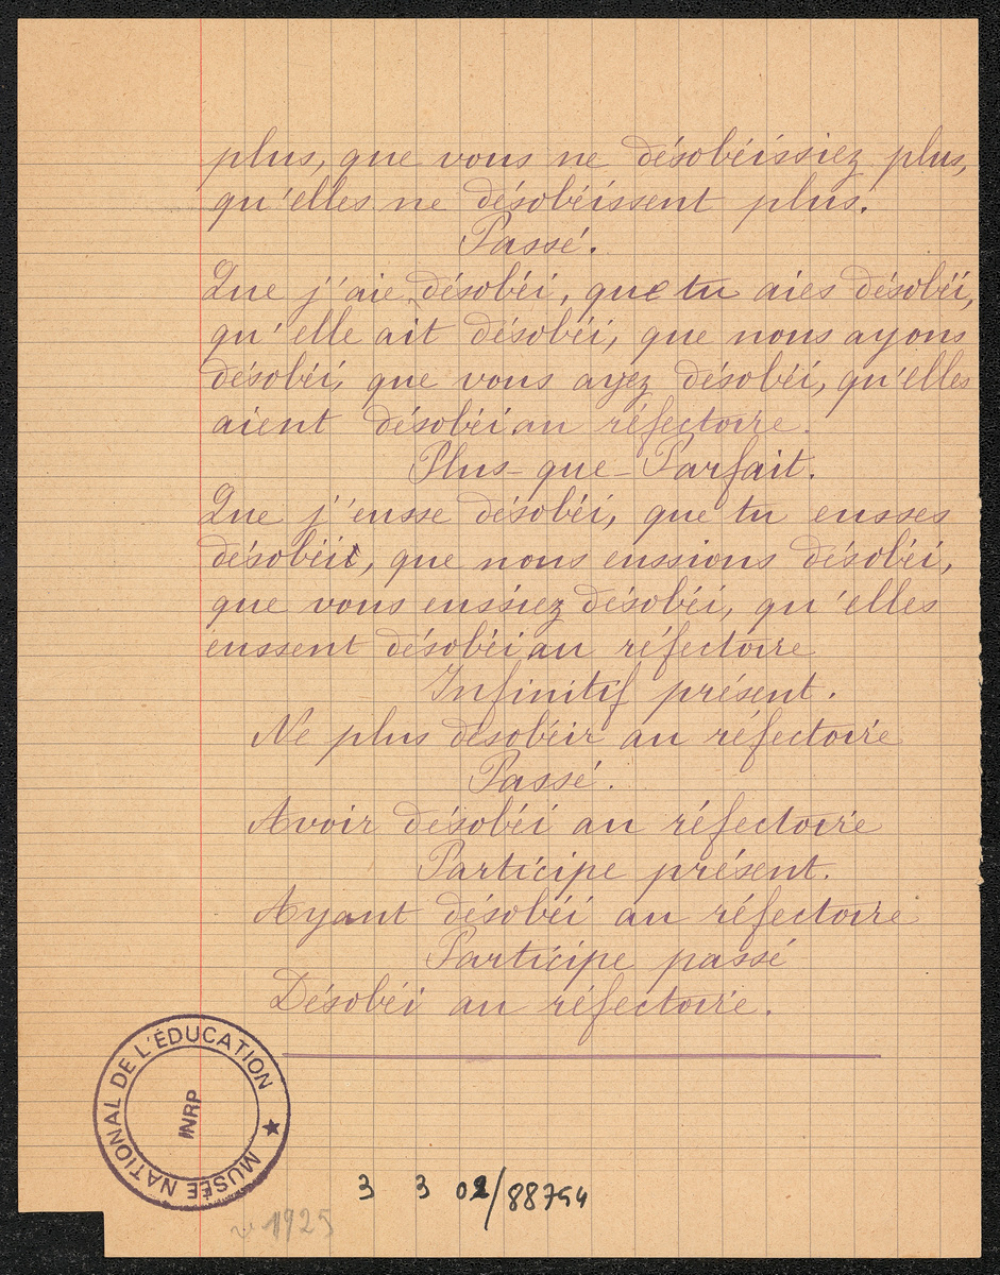 plus, que vous ne désobéissiez plus,
qu'elles ne désobéissent plus.
Passé.
Que j'aie désobéi, que tu aies désobéi,
qu'elle ait désobéi, que nous ayons
désobéi, que vous ayez désobéi, qu'elles
aient désobéi au réfectoire.
Plus-que-Parfait.
Que j'eusse désobéi, que tu eusses
désobéit, que nous eussions désobéi,
que vous eussiez désobéi, qu'elles
eussent désobéi au réfectoire
Infinitif présent.
Ne plus désobéir au réfectoire
Passé.
Avoir désobéi au réfectoire
Participe présent.
Ayant désobéi au réfectoire
Participe passé
Désobéi au réfectoire.
MUSÉE NATIONAL DE L'ÉDUCATION ★
INRP
3 3 02/88794
1925